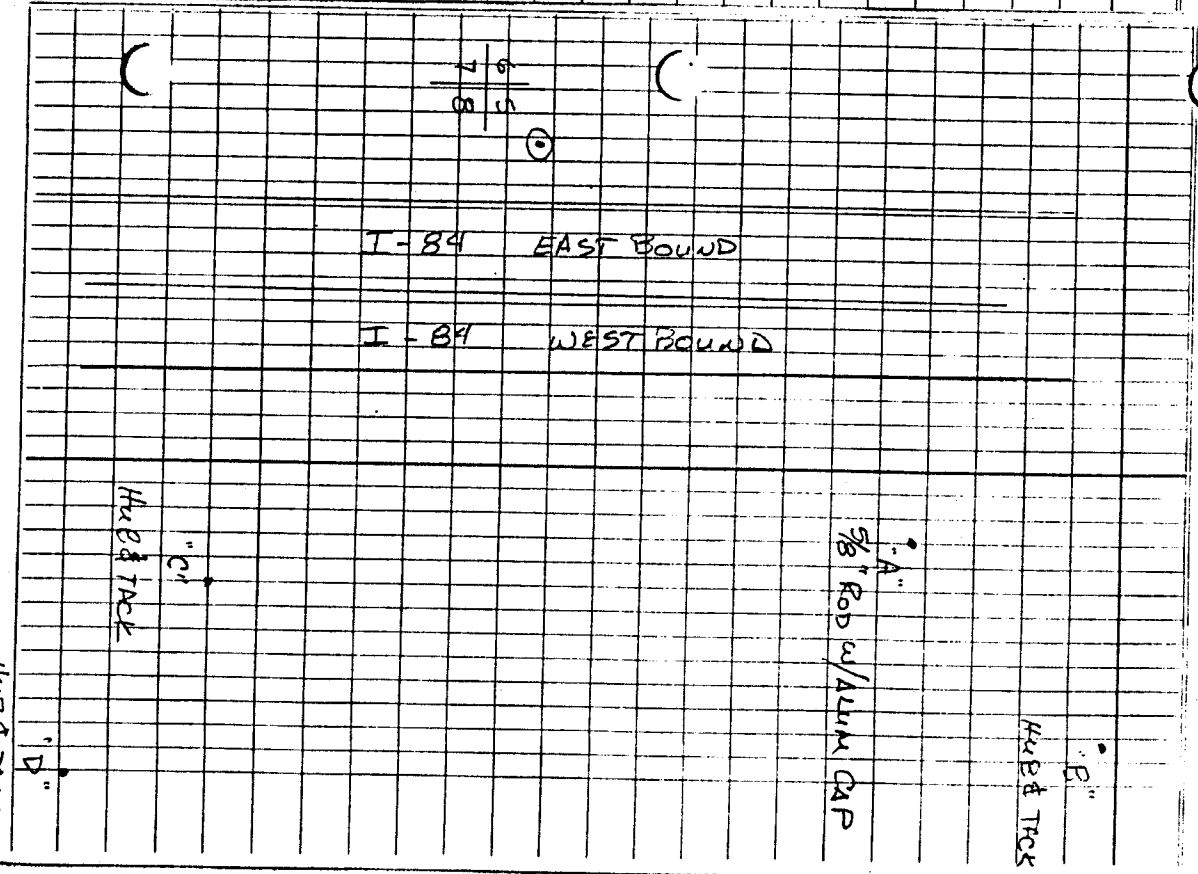 6 5
7 8
I-84 EAST BOUND
I-84 WEST BOUND
"C"
HUB & TACK
"A"
5/8" ROD W/ALUM CAP
"B"
HUB & TACK
"D"